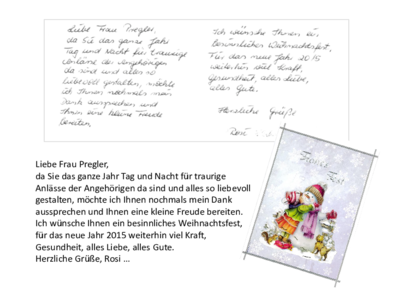 Liebe Frau Pregler,
da Sie das ganze Jahr
Tag und Nacht für traurige
Anlässe der Angehörigen
da sind und alles so
liebevoll gestalten, möchte
ich Ihnen nochmals mein
Dank aussprechen und
Ihnen eine kleine Freude
bereiten.
Ich wünsche Ihnen ein
besinnliches Weihnachtsfest,
für das neue Jahr 2015
weiterhin viel Kraft,
Gesundheit, alles Liebe,
alles Gute.
Herzliche Grüße
Rosi
Liebe Frau Pregler,
da Sie das ganze Jahr Tag und Nacht für traurige
Anlässe der Angehörigen da sind und alles so liebevoll
gestalten, möchte ich Ihnen nochmals mein Dank
aussprechen und Ihnen eine kleine Freude bereiten.
Ich wünsche Ihnen ein besinnliches Weihnachtsfest,
für das neue Jahr 2015 weiterhin viel Kraft,
Gesundheit, alles Liebe, alles Gute.
Herzliche Grüße, Rosi ...
Frohes
Fest